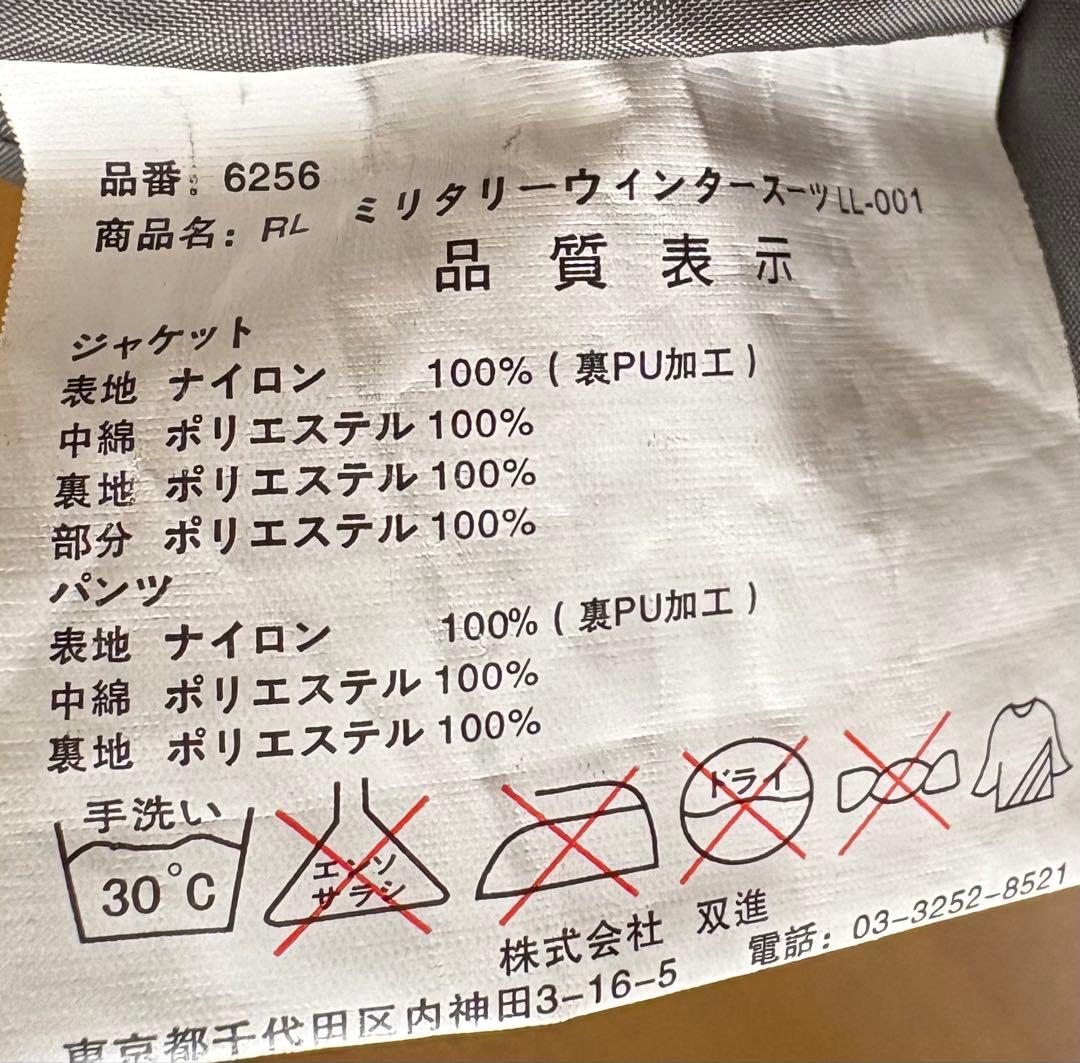 品番: 6256
商品名: RL ミリタリーウインタースーツ LL-001
品質表示
ジャケット
表地 ナイロン 100% ( 裏PU加工 )
中綿 ポリエステル 100%
裏地 ポリエステル 100%
部分 ポリエステル 100%
パンツ
表地 ナイロン 100% ( 裏PU加工 )
中綿 ポリエステル 100%
裏地 ポリエステル 100%
手洗い
30℃
エンソ
サラシ
ドライ
株式会社 双進
東京都千代田区内神田3-16-5
電話: 03-3252-8521